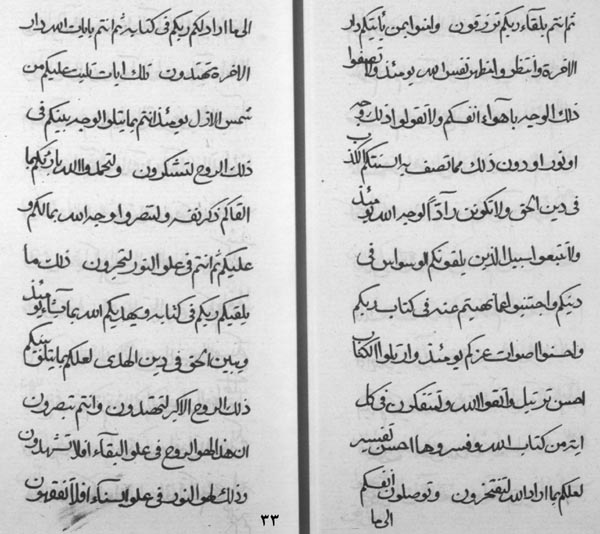 ثم انتم بلقاء ربكم ترزقون وامنوا بمن ياتيكم دار
الاخرة وانتظروا لمظهر نفس الله يومئذ ولا تصفوا
ذلك الوجه باهواء انفسكم ولا تقولوا ذلك وجه
او نور او دون ذلك مما تصف به السنتكم الكذب
في دين الحق ولا تكونن راداً لوجه الله يومئذ
ولا تتبعوا سبيل الذين يلقونكم الوسواس في
دينكم واجتنبوا عما نهيتم عنه في كتاب ربكم
واحسنوا اصوات عزكم يومئذ وارتلوا الكتاب
احسن ترتيل واتقوا الله ولتتفكرون في كل
اية من كتاب الله وفسروها احسن تفسير
لعلكم بما اراد الله لتفتخرون وتوصلون انفسكم
الى ما
الى ما اراد لكم ربكم في كتابه ثم انتم بايات الله دار
الاخرة تهتدون تلك ايات تليت عليكم من
شمس الازل يومئذ انتم بما يتلوا الوجه بينكم في
ذلك الروح لتشكرون ولتحمدوا الله بارئكم بما
القاكم ذكر نفسه ولتنصروا وجه الله بما لكم و
عليكم ثم انتم في علو النور لتحبرون ذلك ما
يلقيكم ربكم في كتابه ويهديكم الله بما يشاء يومئذ
وبين الحق في دين الهدى لعلكم بما يتلى بينكم
ذلك الروح الاكبر لتهتدون وانتم تبصرون
ان هذا لهو الروح في علو البقاء افلا تشهدون
وذلك لهو النور في علو السناء افلا تفقهون
٣٣